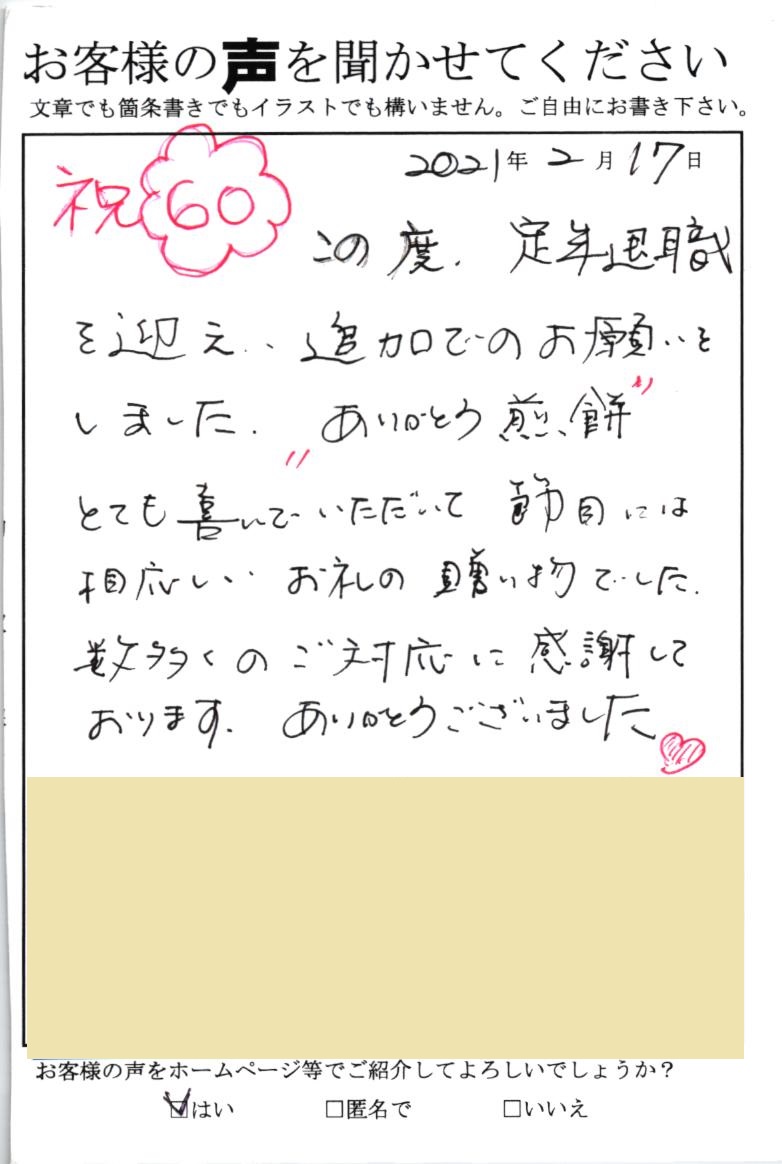 お客様の声を聞かせてください
文章でも箇条書きでもイラストでも構いません。ご自由にお書き下さい。
祝60
2021年2月17日
この度、定年退職
を迎え、追加でのお願いを
しました。"ありがとう煎餅"
とても喜いでいただいて節目には
相応しいお礼の贈り物でした。
数多くのご対応に感謝して
おります。ありがとうございました
お客様の声をホームページ等でご紹介してよろしいでしょうか？
☑はい □匿名で □いいえ